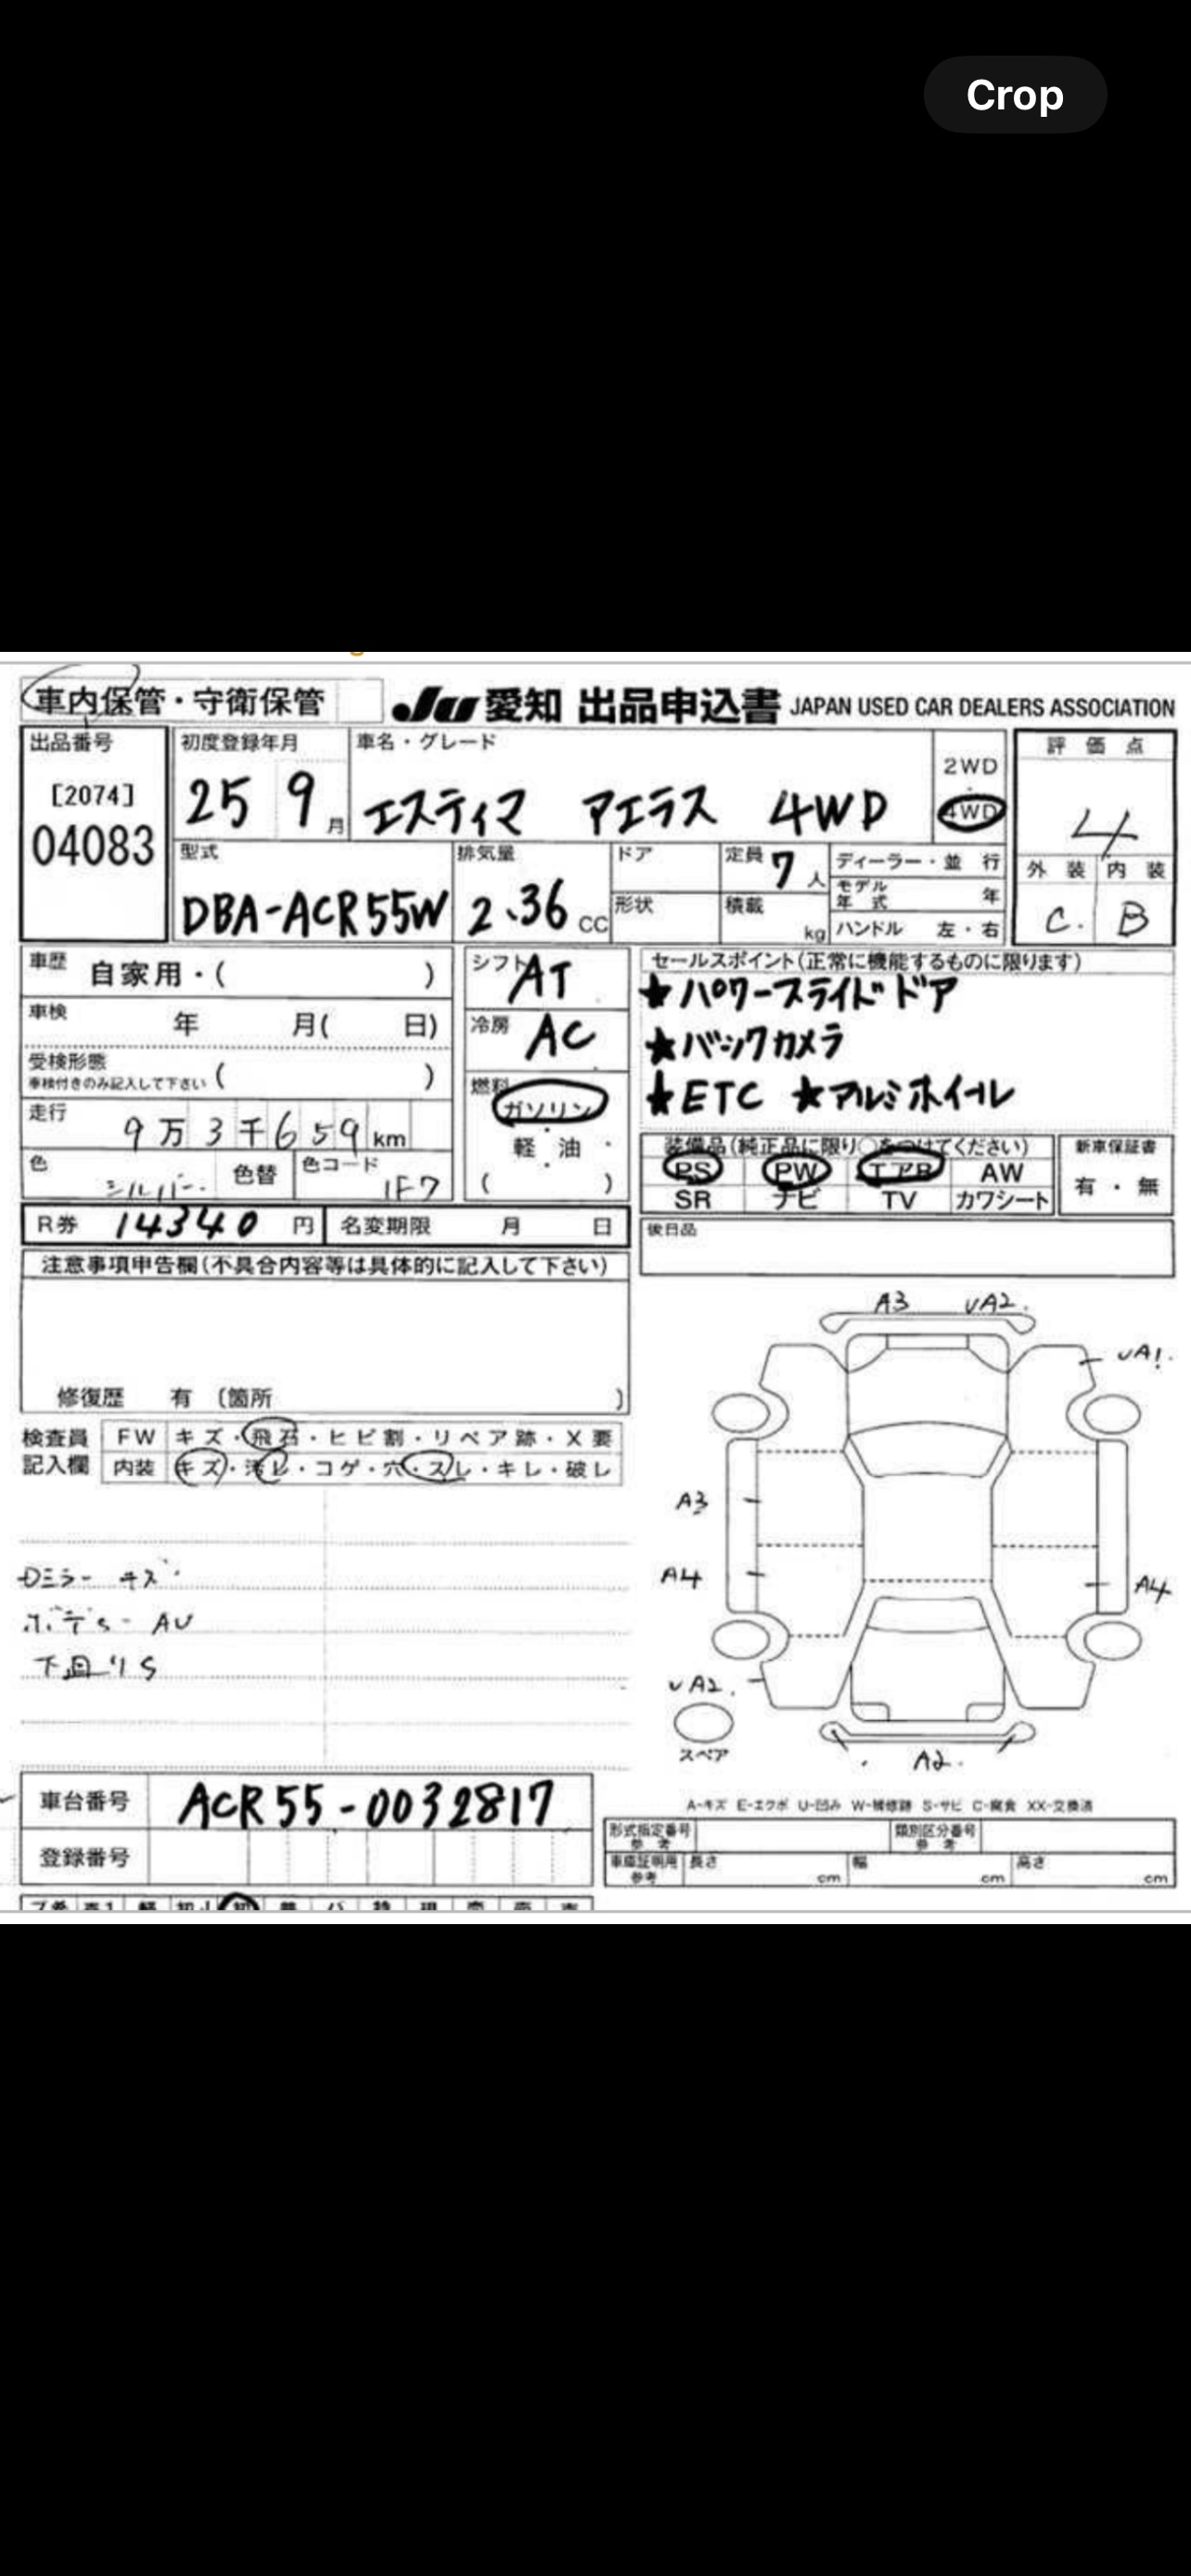 Crop
車内保管・守衛保管
JU 愛知 出品申込書 JAPAN USED CAR DEALERS ASSOCIATION
出品番号
[2074]
04083
初度登録年月
25 9月
車名・グレード
エスティマ アエラス 4WD
2WD
・
4WD
評価点
4
外装 内装
C. B
型式
DBA-ACR55W
排気量
2.36 CC
ドア
形状
定員 7人
積載 kg
ディーラー・並行
モデル年式 年
ハンドル 左・右
車歴 自家用・( )
車検 年 月( 日)
受検形態
車検付きのみ記入して下さい ( )
走行 9万3千659km
色 シルバー 色替 色コード 1F7
シフト AT
冷房 AC
燃料 ガソリン
・
軽油
・
( )
セールスポイント(正常に機能するものに限ります)
★パワースライドドア
★バックカメラ
★ETC ★アルミホイール
装備品(純正品に限り○をつけてください)
PS PW エアB AW
SR ナビ TV カワシート
新車保証書
有・無
R券 14340 円 名変期限 月 日
後日品
注意事項申告欄(不具合内容等は具体的に記入して下さい)
修復歴 有 (箇所 )
検査員記入欄
FW キズ・飛石・ヒビ割・リペア跡・X要
内装 キズ・汚レ・コゲ・穴・スレ・キレ・破レ
Dミラー キズ
AU
下回りS
A3 UA2.
UA1.
A3
A4
A4
UA2.
スペア
A2.
車台番号 ACR55-0032817
登録番号
A-キズ E-エクボ U-凹み W-補修跡 S-サビ C-腐食 XX-交換済
形式指定番号参考 類別区分番号参考
車庫証明用参考 長さ cm 幅 cm 高さ cm